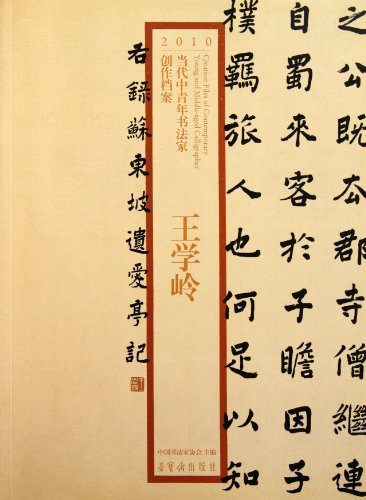 之公既去郡寺僧繼連
自蜀來客於子瞻因子
樸羈旅人也何足以知
2010
Creation Files of Contemporary
Young and Middle-aged Calligrapher
当代中青年书法家
创作档案
王学岭
中国书法家协会 主编
荣宝斋出版社
右錄蘇東坡遺愛亭記